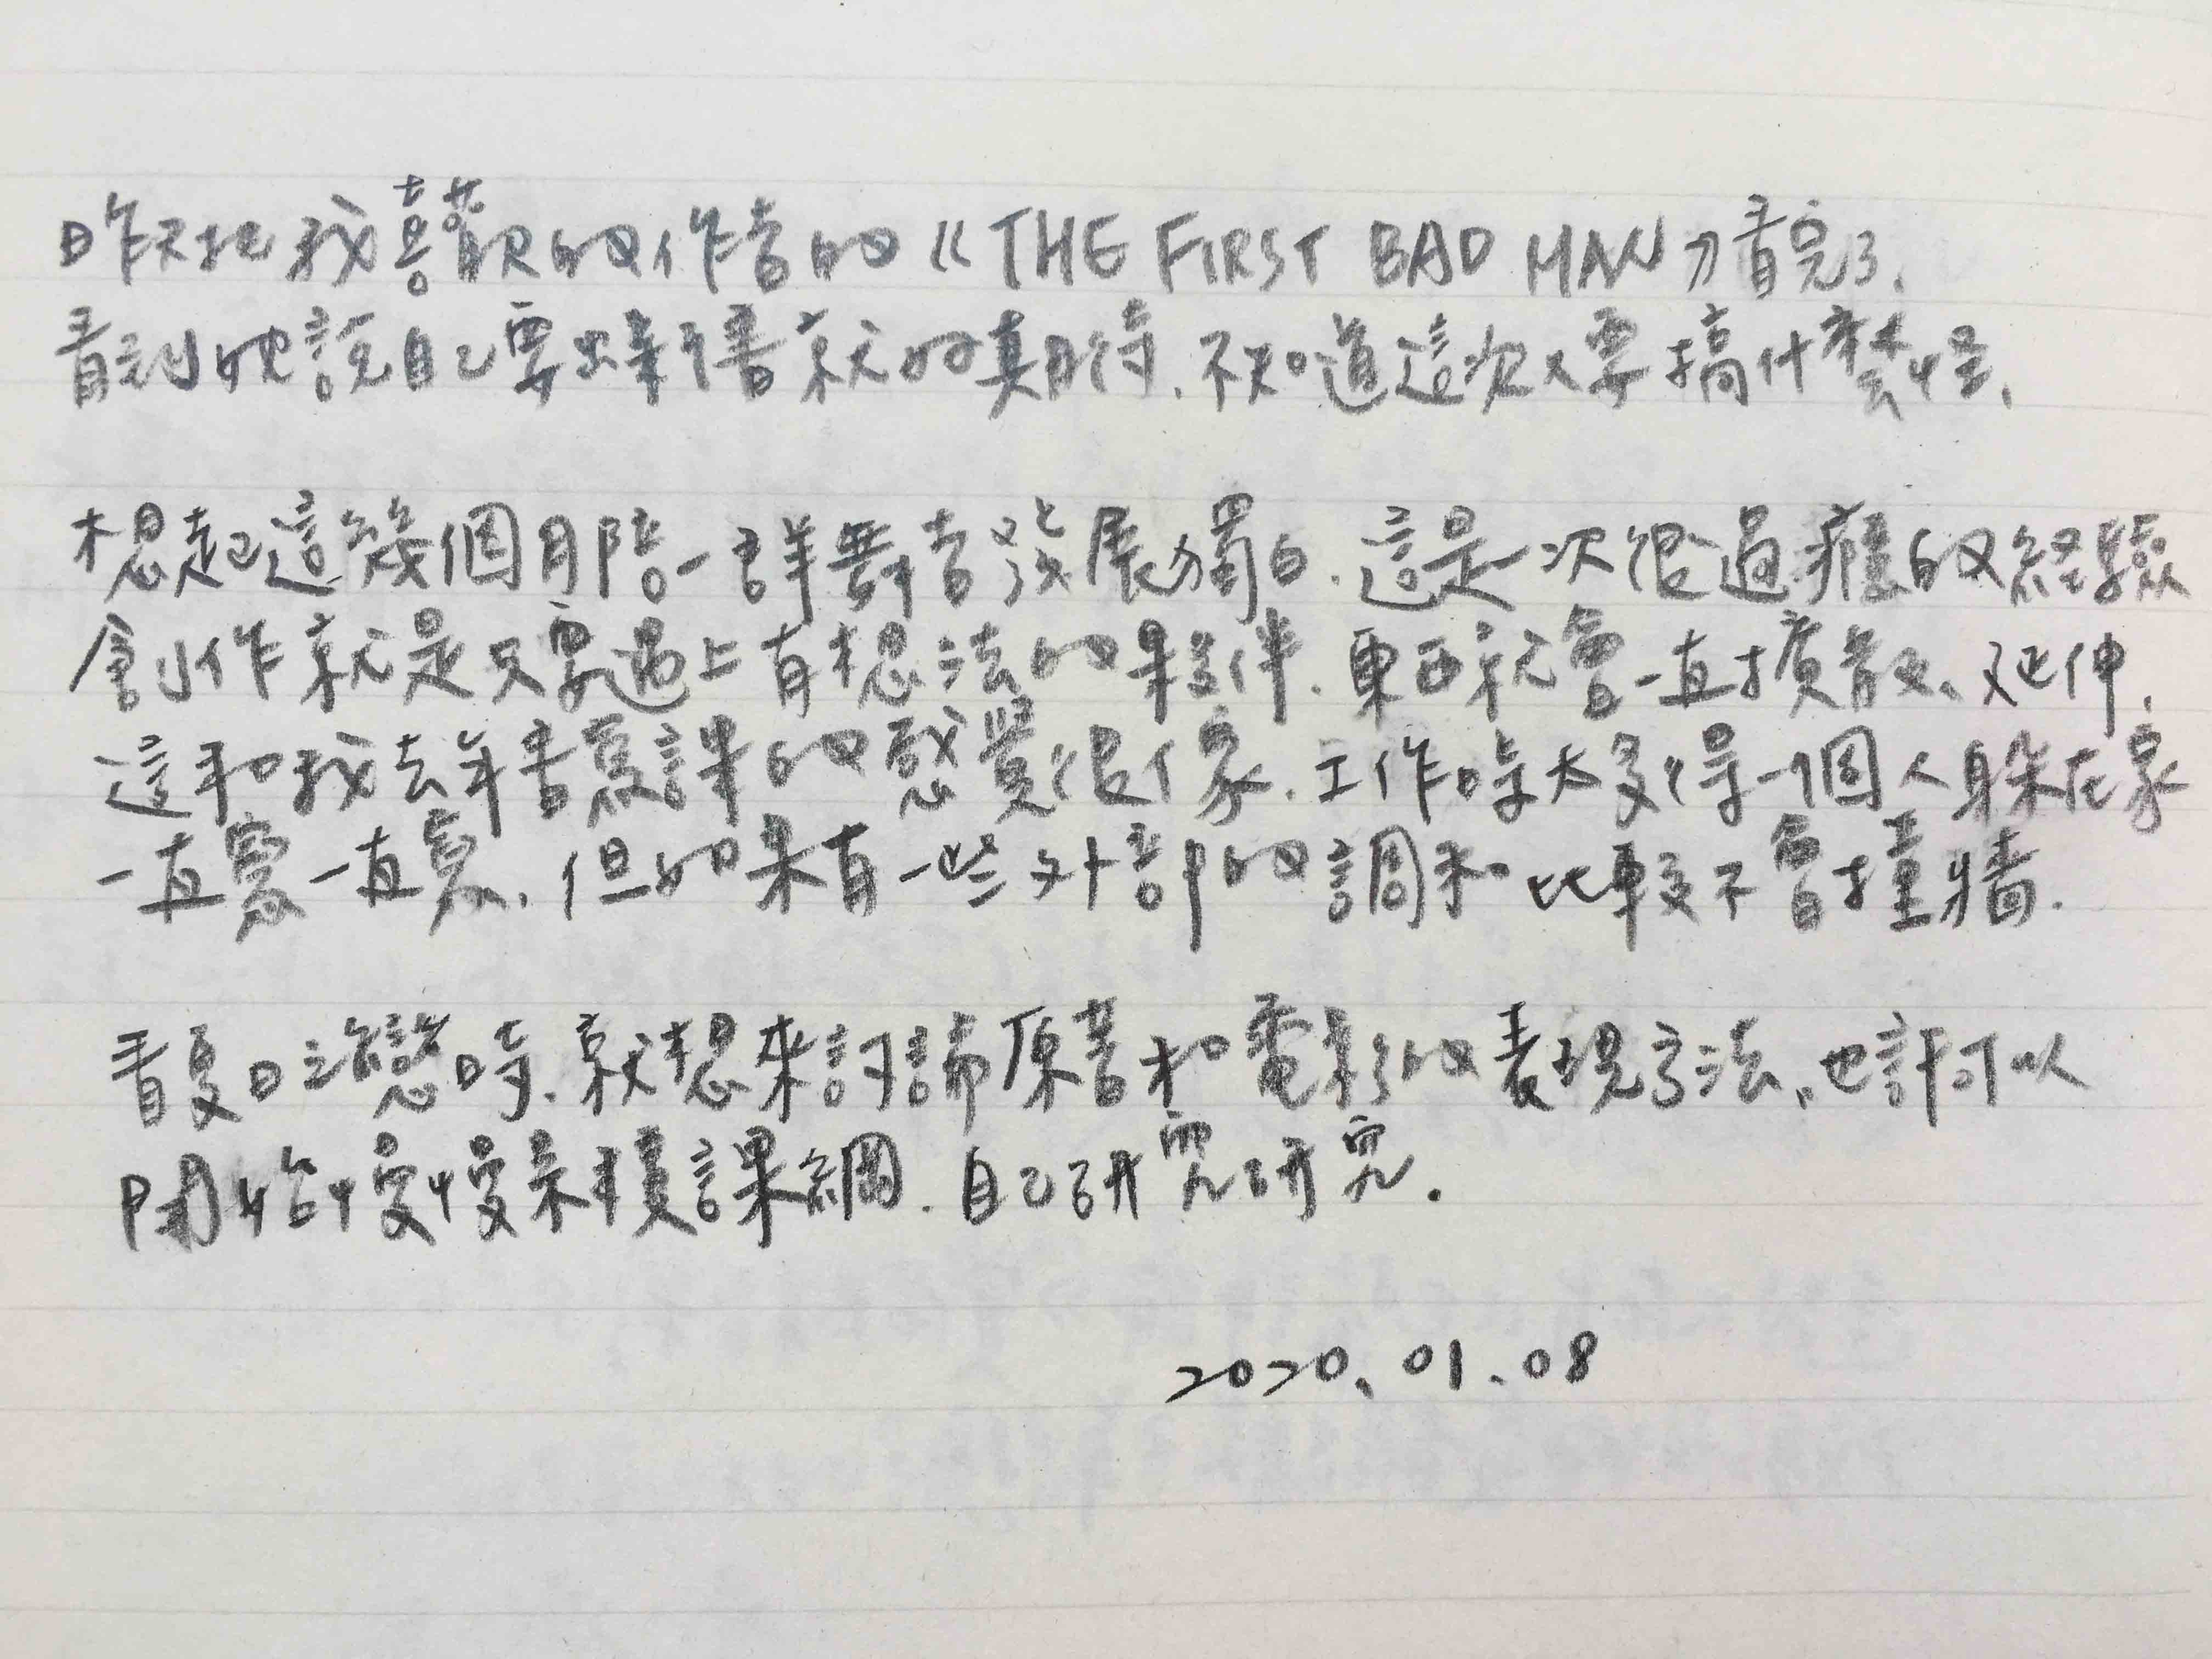 昨天把我喜歡的作者的《THE FIRST BAD MAN》看完了、
看到她說自己要出新書就好期待、不知道這次又要搞什麼怪、
想起這幾個月陪一群舞者發展獨白、這是一次很過癮的經驗
創作就是只要遇上有想法的夥伴、東西就會一直擴散、延伸、
這和我去年書寫課的感覺很像、工作時大多得一個人躲在家
一直寫一直寫、但如果有一些外部的調和比較不會撞牆.
看夏日之戀時、就想來討論原著和電影的表現方法、也許可以
開始慢慢累積課綱、自己研究研究.
2020.01.08